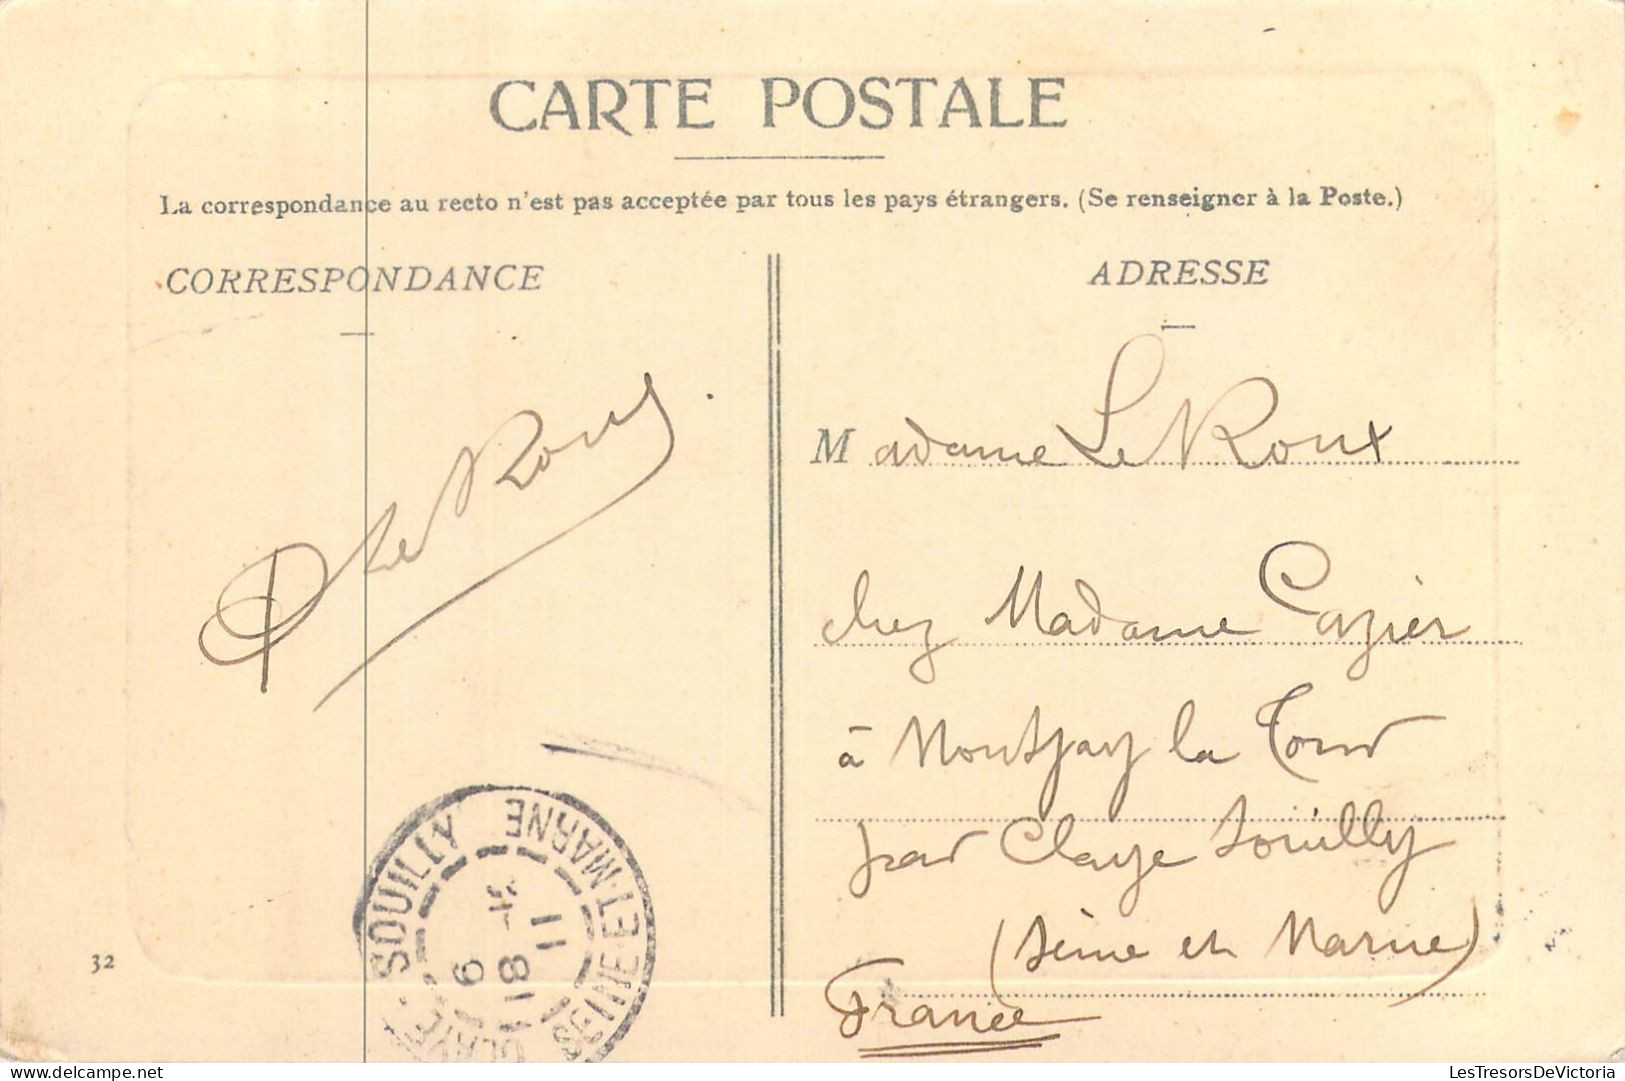 CARTE POSTALE
La correspondance au recto n'est pas acceptée par tous les pays étrangers. (Se renseigner à la Poste.)
CORRESPONDANCE
ADRESSE
Le Roux
Madame Le Roux
chez Madame Cazier
à Montjay la Tour
par Claye Souilly
(Seine et Marne)
France
CLAYE-SOUILLY
SEINE-ET-MARNE
11
18
9
32
LesTresorsDeVictoria